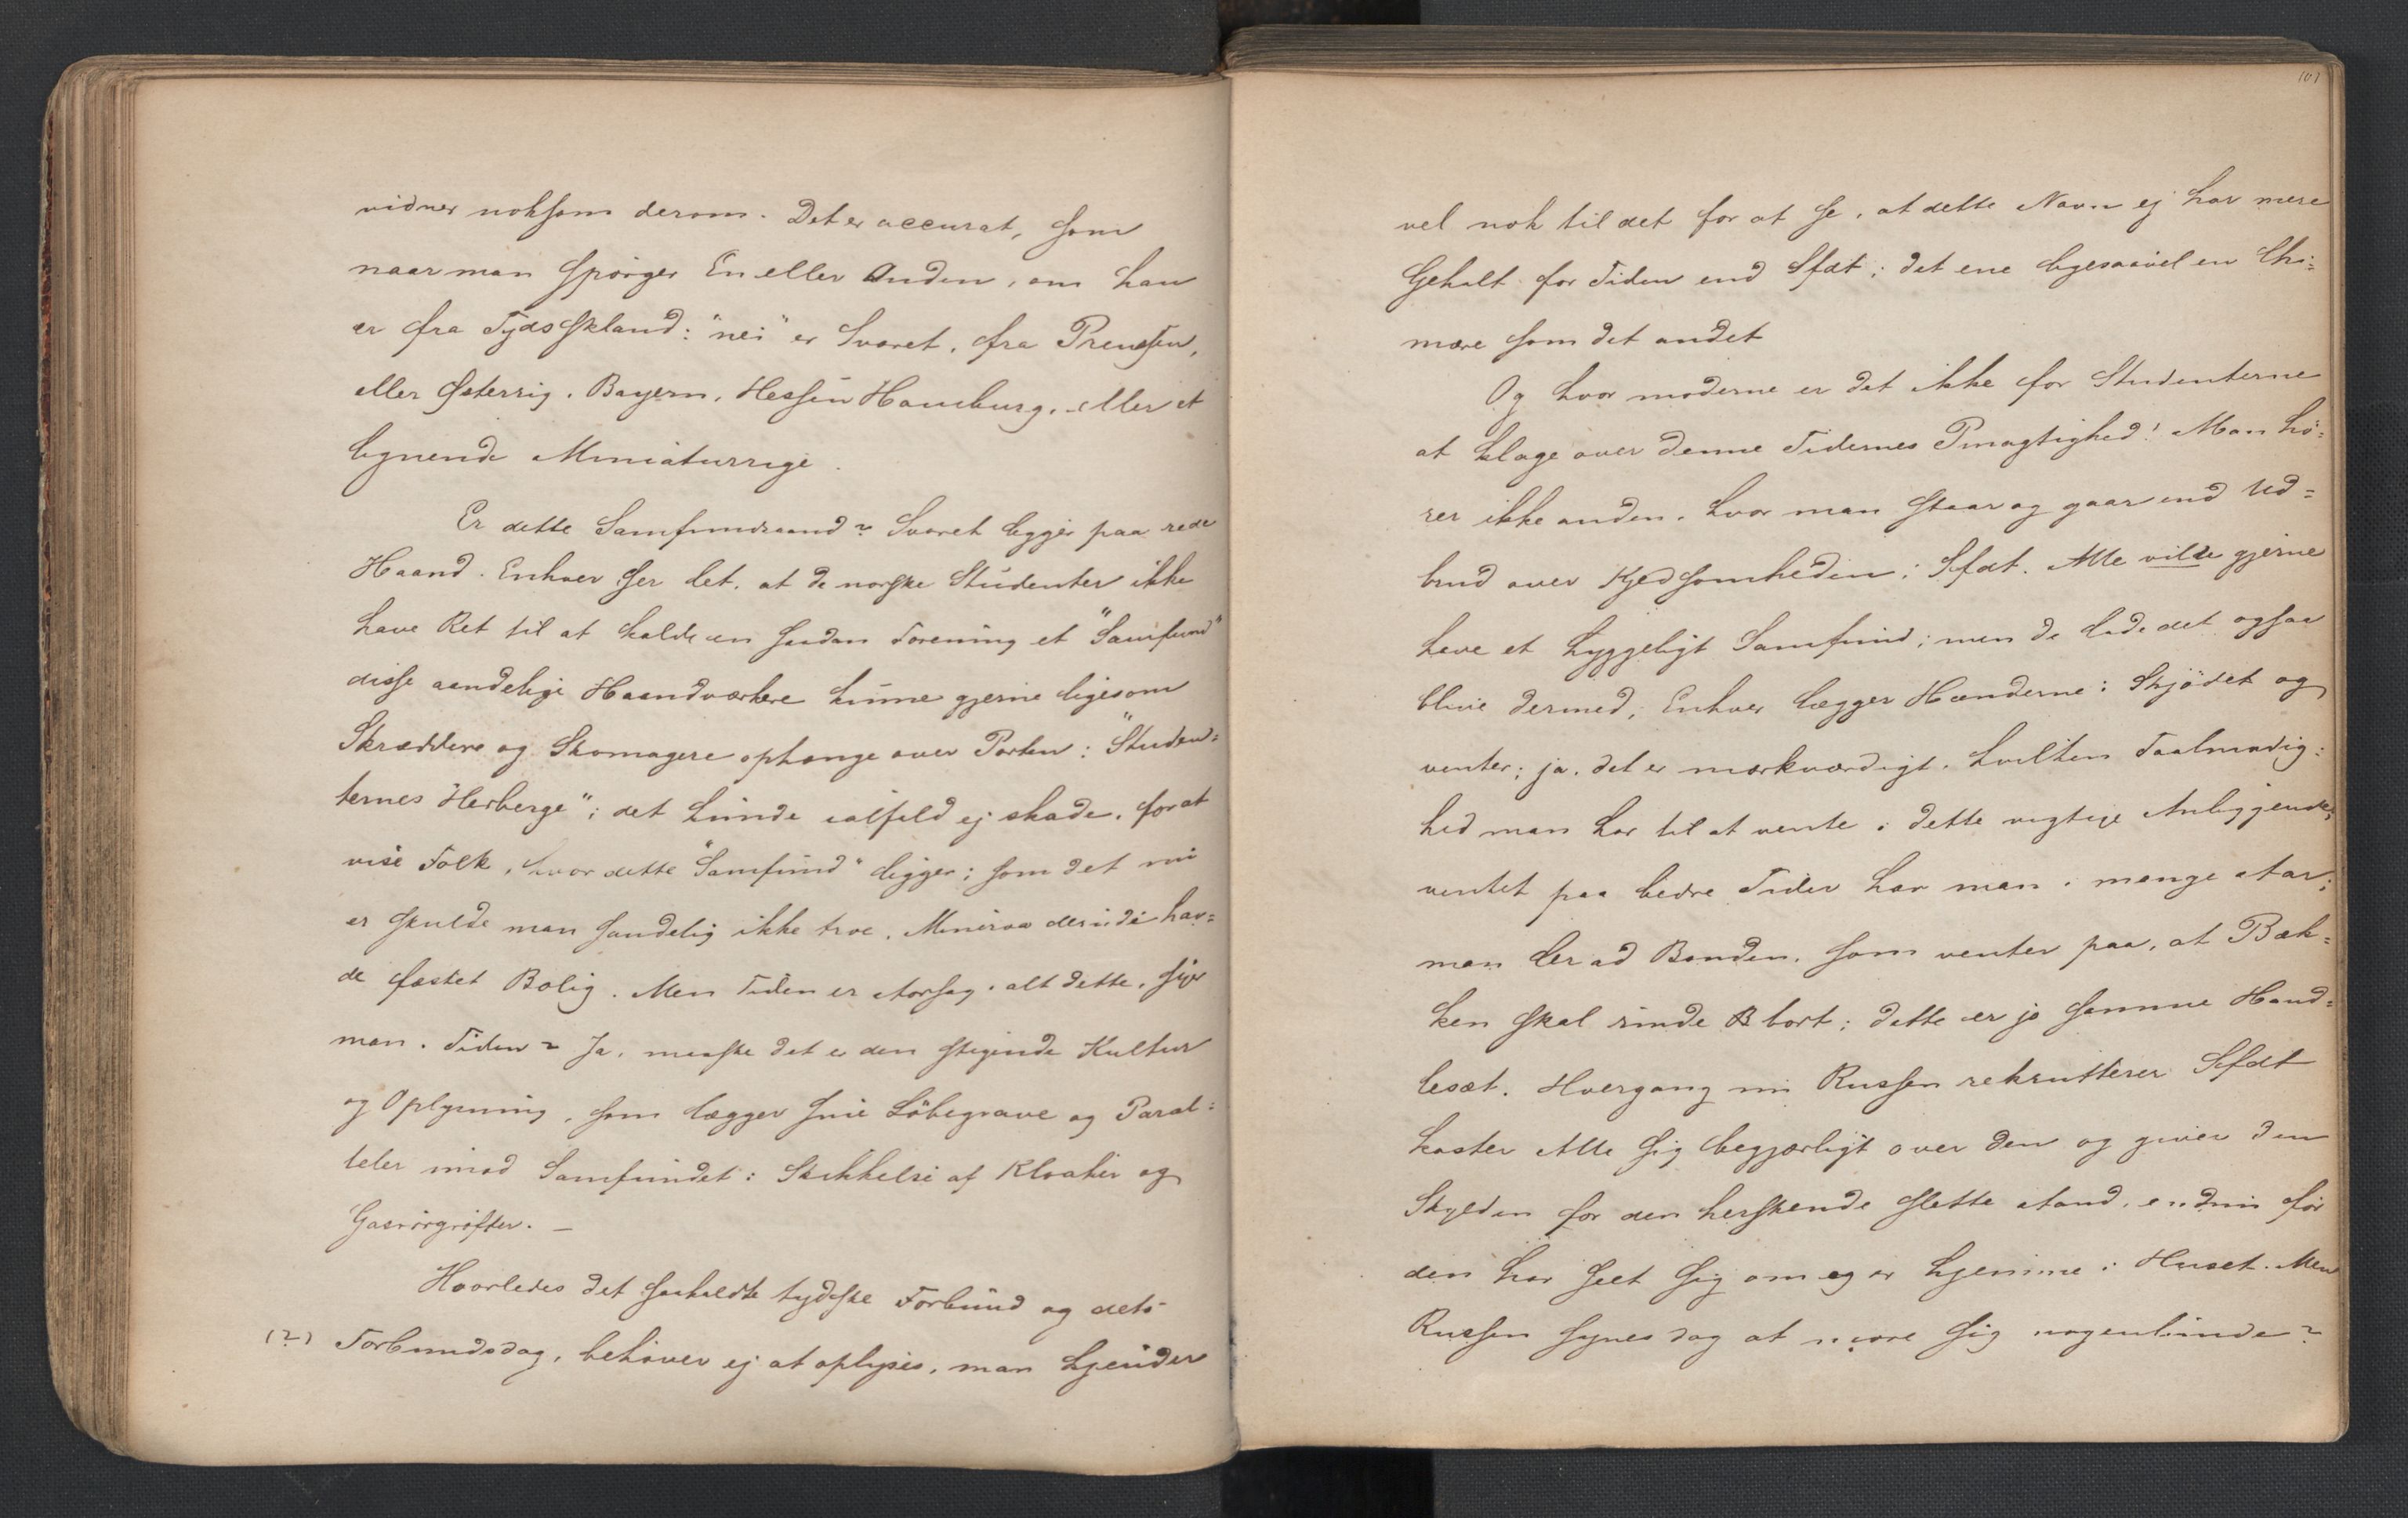 vidner noksom derom. Det er accurat, som
naar man spörger En eller Anden, om han
er fra Tydsskland: "nei" er Svaret, fra Preussen,
eller Østerrig, Bayern, Hessen Homburg, eller et
lignende Miniaturrige.
Er dette Samfundsaand? Svaret ligger paa rede
Haand. Enhver ser let, at de norske Studenter ikke
have Ret til at kalde en saadan Forening et "Samfund"
disse aandelige Haandværkere kunne gjerne ligesom
Skræddere og Skomagere ophænge over Porten: "Studen=
ternes Herberge"; det kunde ialfald ej skade, for at
vise Folk, hvor dette "Samfund" ligger; som det nu
er skulde man sandelig ikke troe, Minerva derinde hav=
de fæstet Bolig. Men Tiden er Aarsag i alt dette, siger
man. Tiden? Ja, maaske det er den stigende Kultur
og Oplysning, som lægger sine Löbegrave og Paral=
leler imod Samfundet i Skikkelse af Kloaker og
Gasrörgröfter. —
Hvorledes det saakaldte tydske Forbund og dets
(?) Forbundsdag, behöver ej at oplyses, man kjender
101
vel nok til det for at se, at dette Navn ej har mere
Gehalt for Tiden end Sfdt; det ene ligesaavel en Chi=
mære som det andet
Og hvor moderne er det ikke for Studenterne
at klage over denne Tidernes Pmagtighed! Man hö=
rer ikke anden, hvor man staar og gaar end Ud=
brud over Kjedsomheden i Sfdt. Alle vilde gjerne
have et hyggeligt Samfund; men de lade det ogsaa
blive dermed; Enhver lægger Hænderne i Skjödet og
venter; ja, det er mærkværdigt, hvilken Taalmodig=
hed man har til at vente i dette vigtige Anliggende;
ventet paa bedre Tider har man i mange Aar;
man ler ad Bonden, som venter paa, at Bæk=
ken skal rinde bort; dette er jo samme Hand=
lesæt. Hvergang nu Russen rekrutterer Sfdt
kaster Alle sig begjærligt over den og giver den
Skylden for den herskende slette Aand, endnu för
den har seet sig om og er hjemme i Huset. Men
Russen synes dog at more sig nogenlunde?